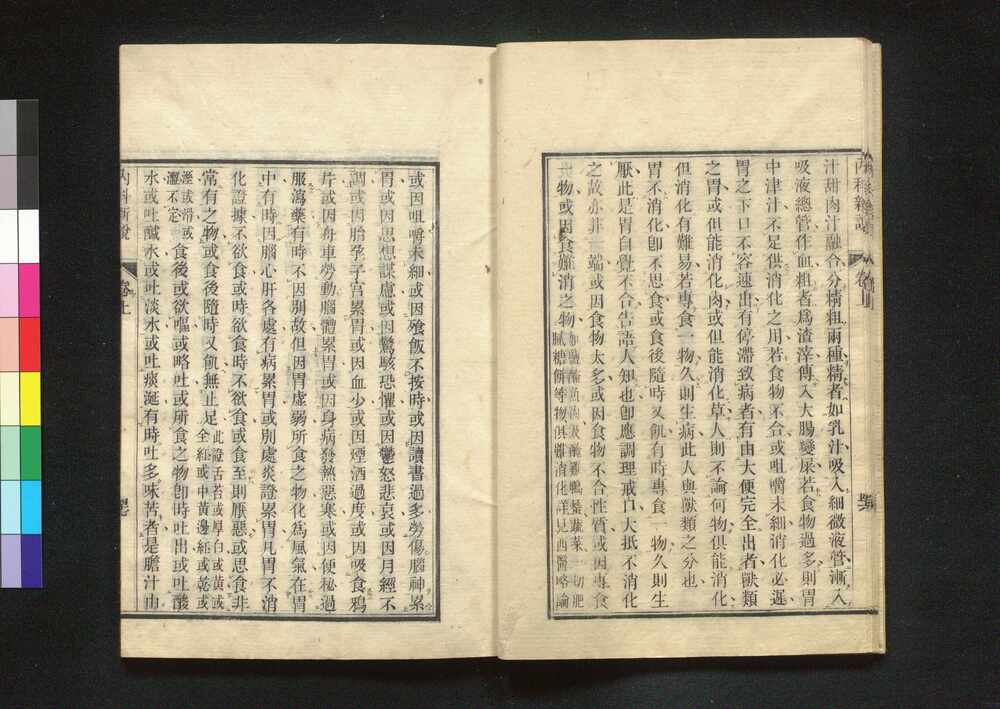 汁甜肉汁融合分精粗兩種精者如乳汁吸入細微液管漸入
吸液總管作血粗者爲渣滓傳入大腸變屎若食物過多則胃
中津汁不足供消化之用若食物不合或咀嚼未細消化必遲
胃之下口不容速出有停滯致病者有由大便完全出者獸類
之胃或但能消化肉或但能消化草人則不論何物俱能消化
但消化有難易若專食一物久則生病此人與獸類之分也
胃不消化卽不思食或食後隨時又飢有時專食一物久則生
厭此是胃自覺不合告語人知也卽應調理戒口大抵不消化
之故亦非一端或因食物太多或因食物不合性質或因專食
一物或因食難消之物
膩糖餅等物俱難消化詳見西醫略論
或因咀嚼未細或因飱飯不按時或因讀書過多勞傷腦神累
胃或因思想謀慮或因驚駭恐懼或因鬱怒悲哀或因月經不
調或因胎孕子宮累胃或因血少或因煙酒過度或因吸食鴉
片或因舟車勞動腦體累胃或因身病發熱惡寒或因便秘過
服瀉藥有時不因別故但因胃虛弱所食之物化爲風氣在胃
中有時因腦心肝各處有病累胃或別處炎證累胃凡胃不消
化證據不欲食或時欲食時不欲食或食至則厭惡或思食非
常有之物或食後隨時又飢無止足
此證舌苔或厚白或黃或
全紅或中黃邊紅或乾或
溼或滑或
濇不定
食後或欲嘔或略吐或所食之物卽時吐出或吐酸
水或吐鹹水或吐淡水或吐痰涎有時吐多味苦者是膽汁由
內科新說
卷上